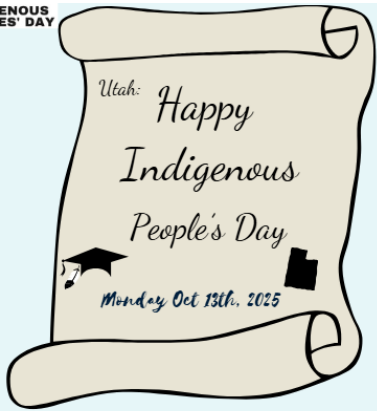 ENOUS
ES' DAY
Utah:
Happy
Indigenous
People's Day
Monday Oct 13th, 2025